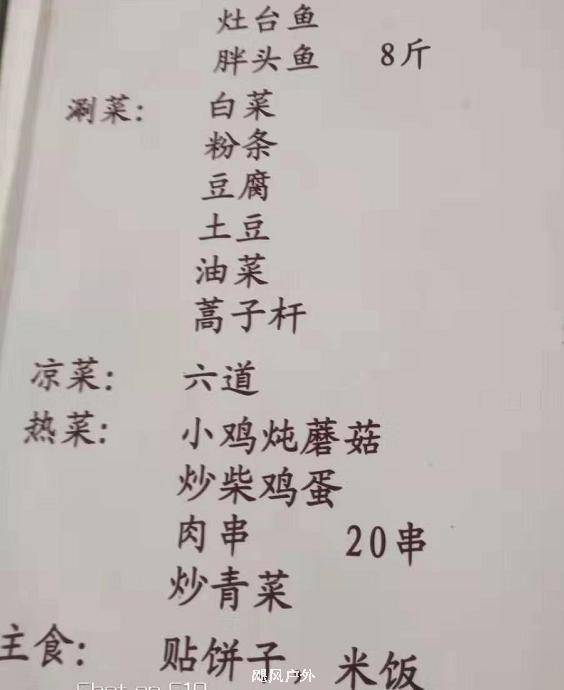 灶台鱼
胖头鱼 8斤
涮菜: 白菜
粉条
豆腐
土豆
油菜
蒿子杆
凉菜: 六道
热菜: 小鸡炖蘑菇
炒柴鸡蛋
肉串 20串
炒青菜
主食: 贴饼子, 米饭
飓风户外